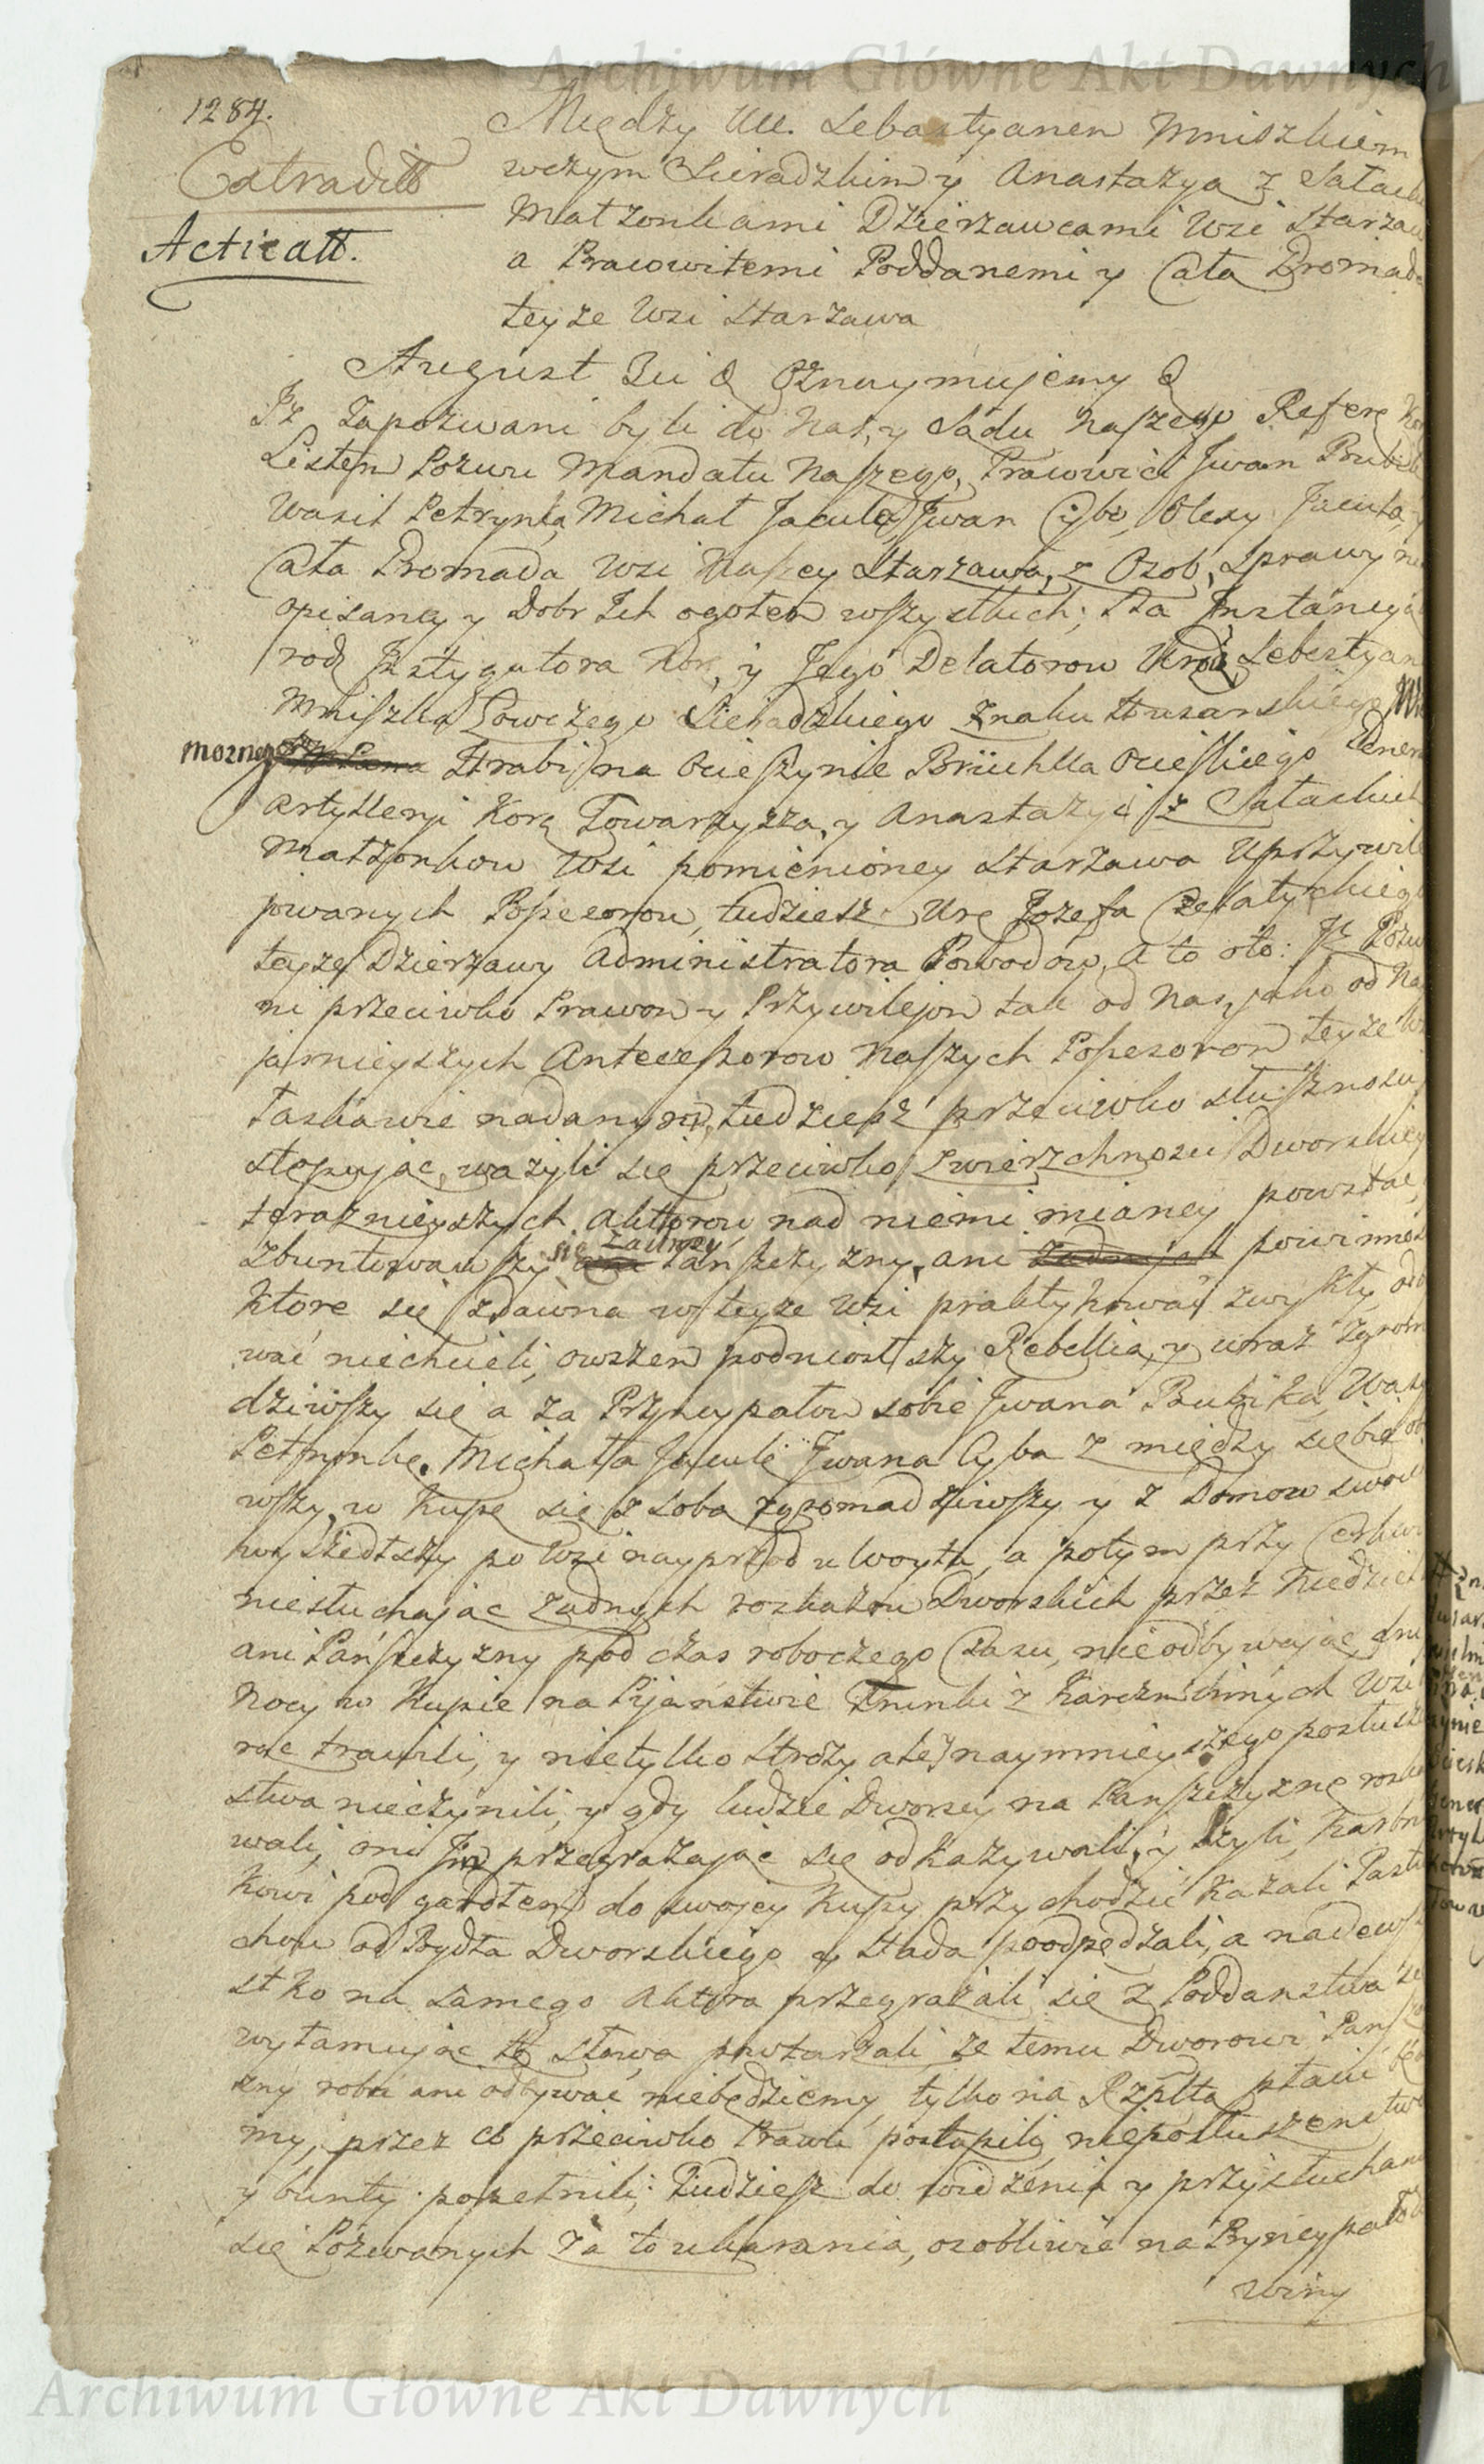 Archiwum Główne Akt Dawnych
1284.
Extraditt
Acticatt.
Między Ur. Sebastyanem Mniszkiem
wczym Sieradzkim y Anastazyą z
Małżonkami Dzierzawcami Wsi Starzaw
a Pracowitemi Poddanemi y Całą Gromadą
teyże Wsi Starzawa
August 3ci & Oznaymujemy &
Iż Zapozwani byli do Nas, y Sądu Naszego Refer
Listem Pozwu Mandatu Naszego, Pracowici Iwan
Wasil Petrynka, Michał Jacula, Iwan Cyba, Olexy Jacuła, y
Cała Gromada Wsi Naszey Starzawa, z Osob, Sprawy
opisaney y Dobr Ich ogołem wszystkich; Na Instancyą
rodz Instygatora Kor, y Jego Delatorow Urodz Sebestyana
Mniszka Łowczego Sieradzkiego Znaku Husarskiego
możnego Hrabi na Ocieszynie Brühlla Ocieskiego Gener
Artylleryi Kor Towarzysza, y Anastazyi z
Małżonkow Wsi pomienioney Starzawa Uprzywile
jowanych Possesorow, tudziesz Ur Jozefa
teyże Dzierzawy Administratora Powodow, A to oto: Iż Pozwa
ni przeciwko Prawom y Przywilejom tak od Nas, jako od Na
jaśnieyszych Antecessorow Naszych Possesorom teyże W
łaskawie nadanym, tudziesz przeciwko słuszności
stępując, ważyli się przeciwko Zwierzchności Dworskiey
teraznieyszych Aktorow nad niemi mianey powstać,
zbuntowawszy się żadney Pańszczyzny, ani powinnoś
ktore się zdawna w teyże Wsi praktykować zwykły, odby
wać niechcieli, owszem podniosłszy Rebellią, y wraz Zgrom
dziwszy się a za Pryncypałow sobie Iwana Wasy
Petrynkę, Michała Jaculę Iwana Cyba z między siebie ob
wszy, w kupę się z sobą zgromadziwszy y z Domow swoich
wyszedłszy po Wsi nayprzod u Woyta, a potym przy Cerkwi
niesłuchając żadnych rozkazow Dworskich przez Niedziel
ani Pańszczyzny pod czas roboczego Czasu, nieodbywając, dni
Nocy w Kupie na Pijaństwie Trunki z Karczm innych Wsi
rąc trawili, y nietylko Stroży ale naymnieyszego posłusze
stwa nieczynili, y gdy ludzie Dworscy na Pańszczyznę roska
wali, oni Im przegrażając się odkazywali, y
kowi pod gardłem do swojey Kupy przychodzić kazali Pastu
chow od Bydła Dworskiego y Stada poodpędzali, a nadewsz
stko na samego Aktora przegrażali się z Poddaństwa
wyłamując te słowa powtarzali że temu Dworowi Pańsz
zny robić ani odbywać niebędziemy, tylko na Rzpltą płacić bę
my, przez co przeciwko Prawu postąpili, nieposłuszeństwo
y bunty popełnili; Tudziesz do widzenia y przysłuchan
się Pozwanych Za to ukarania, osobliwie na Pryncypałow
winy
Archiwum Główne Akt Dawnych